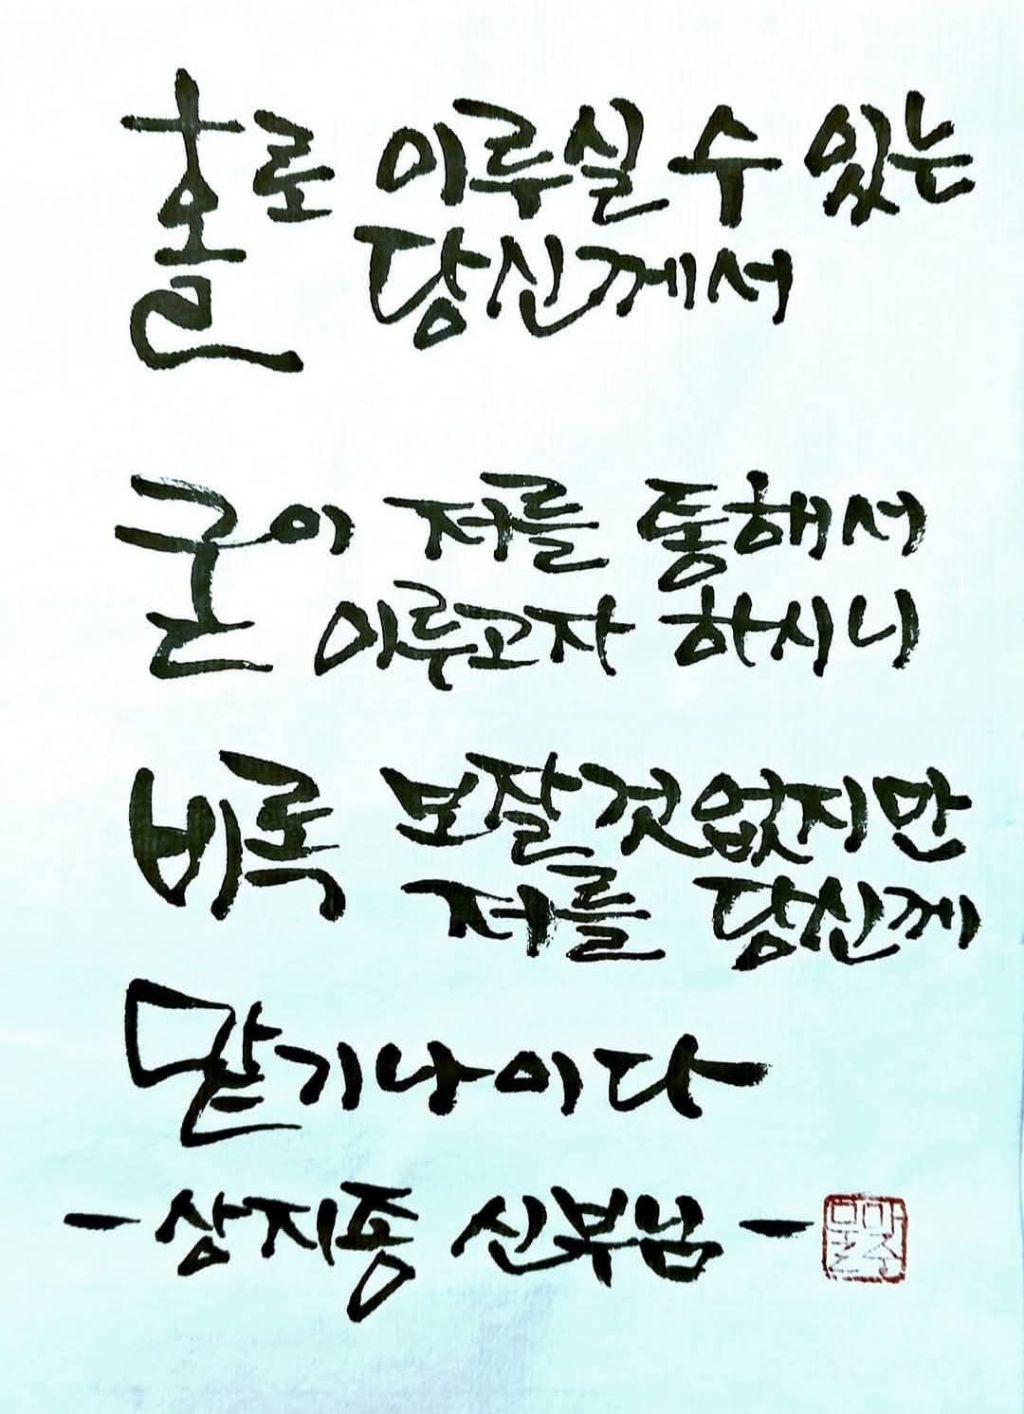 홀로 이루실 수 있는
당신께서
굳이 저를 통해서
이루고자 하시니
비록 보잘것없지만
저를 당신께
맡기나이다
- 상지종 신부님 -